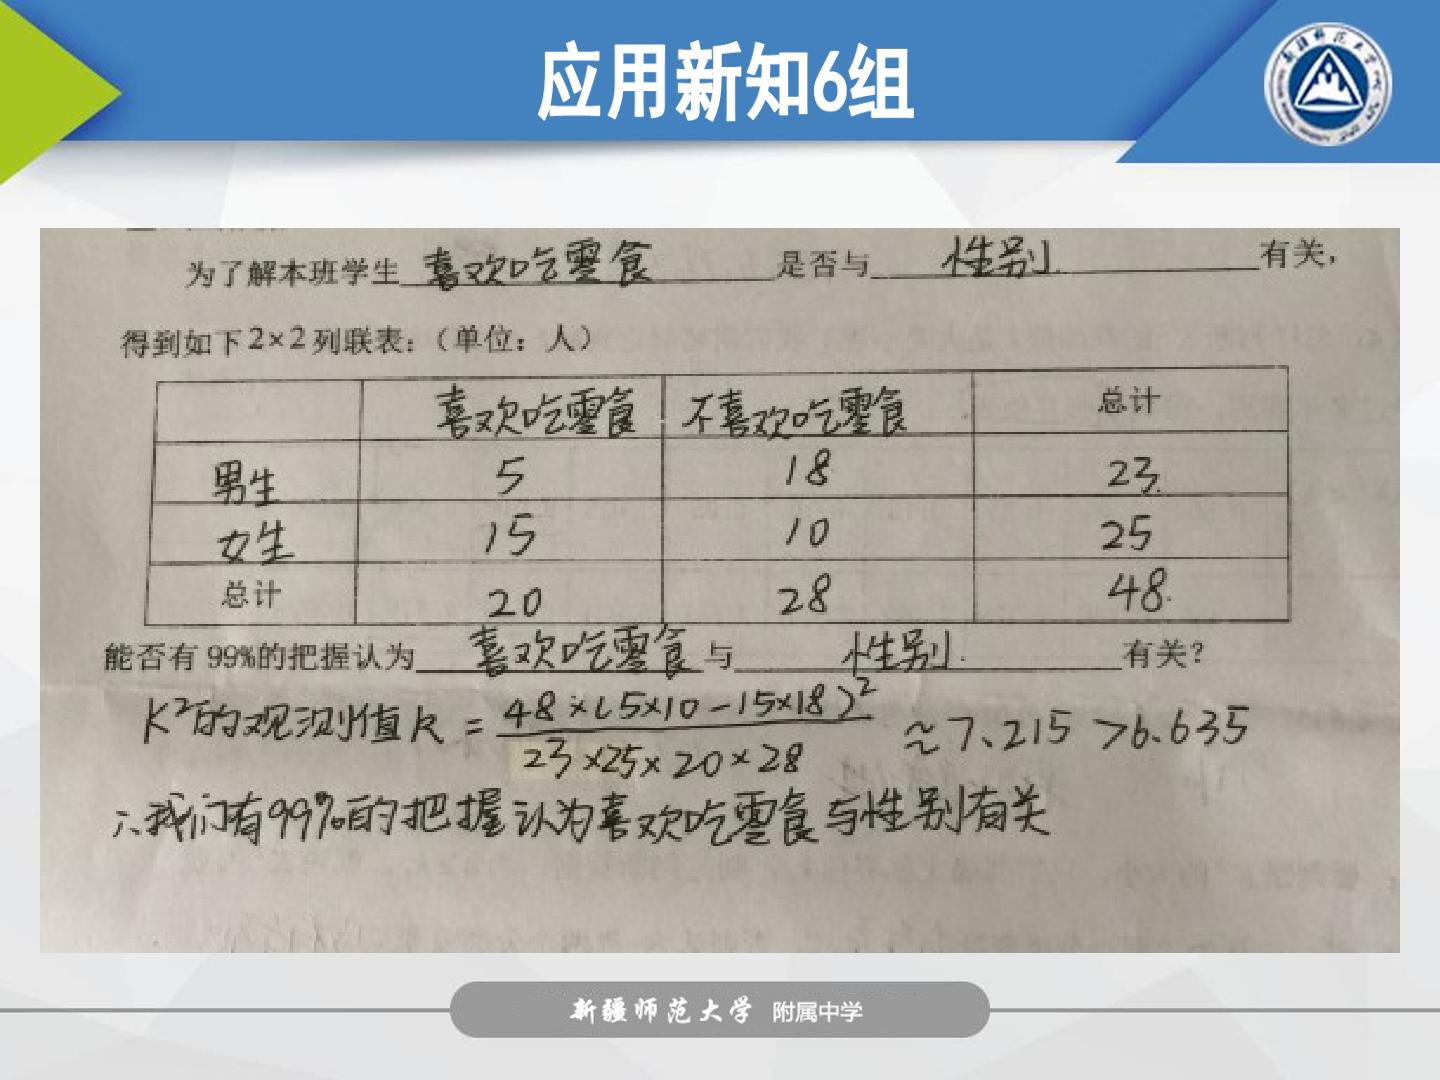 应用新知6组
为了解本班学生 喜欢吃零食 是否与 性别 有关，
得到如下2×2列联表：（单位：人）
喜欢吃零食 不喜欢吃零食 总计
男生 5 18 23
女生 15 10 25
总计 20 28 48
能否有99%的把握认为 喜欢吃零食 与 性别 有关？
K²的观测值k = 48×(5×10-15×18)² / 23×25×20×28 ≈7.215 >6.635
∴我们有99%的把握认为喜欢吃零食与性别有关
新疆师范大学 附属中学